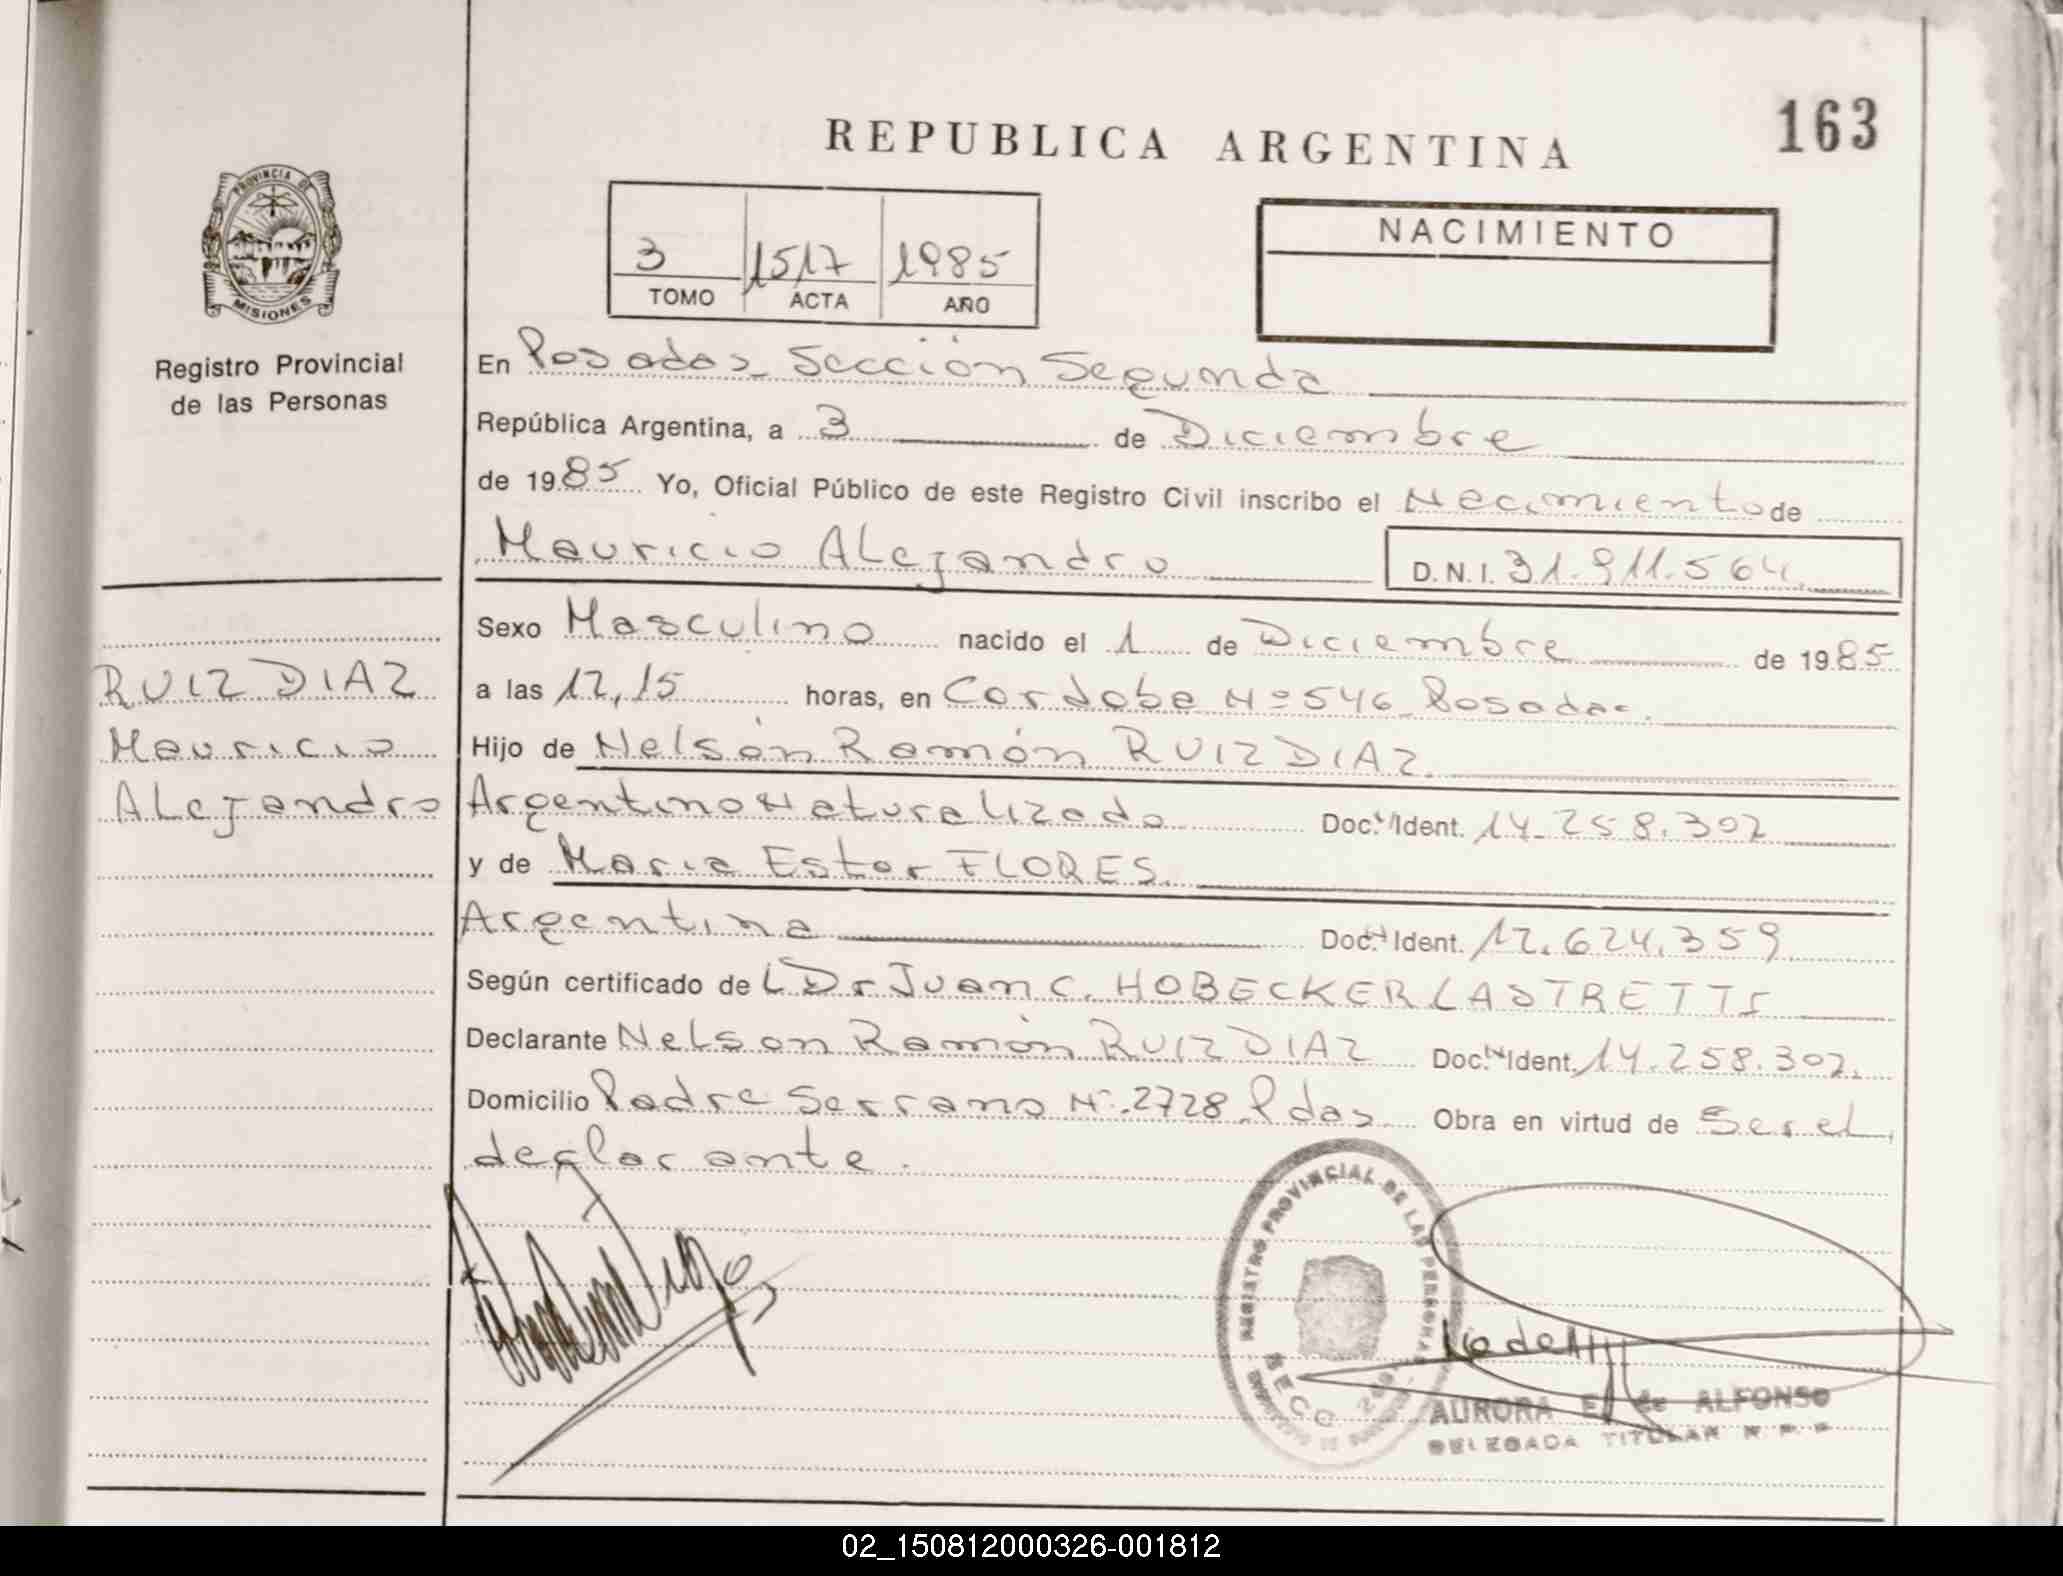 REPUBLICA ARGENTINA
163
PROVINCIA DE
MISIONES
Registro Provincial
de las Personas
3 1517 1985
TOMO ACTA AÑO
NACIMIENTO
En Posadas Sección Segunda
República Argentina, a 3 de Diciembre
de 1985 Yo, Oficial Público de este Registro Civil inscribo el Nacimiento de
Mauricio Alejandro D.N.I. 31.911.564
Sexo Masculino nacido el 1 de Diciembre de 1985
a las 12,15 horas, en Cordoba Nº 546 Posadas.
Hijo de Nelsón Ramón RUIZ DIAZ.
Argentino Naturalizado Doc. N Ident. 14.258.302
y de Maria Ester FLORES.
Argentina Doc. N Ident. 12.624.359
Según certificado de L Dr Juan C. HOBECKER LASTRETTI
Declarante Nelson Ramón RUIZ DIAZ Doc. N Ident. 14.258.302.
Domicilio Padre Serrano Nº 2728 Pdas. Obra en virtud de Ser el
declarante.
RUIZ DIAZ
Mauricio
Alejandro
REGISTRO PROVINCIAL DE LAS PERSONAS
SECC. 2da
AURORA E. de ALFONSO
DELEGADA TITULAR R. P. P.
02_150812000326-001812